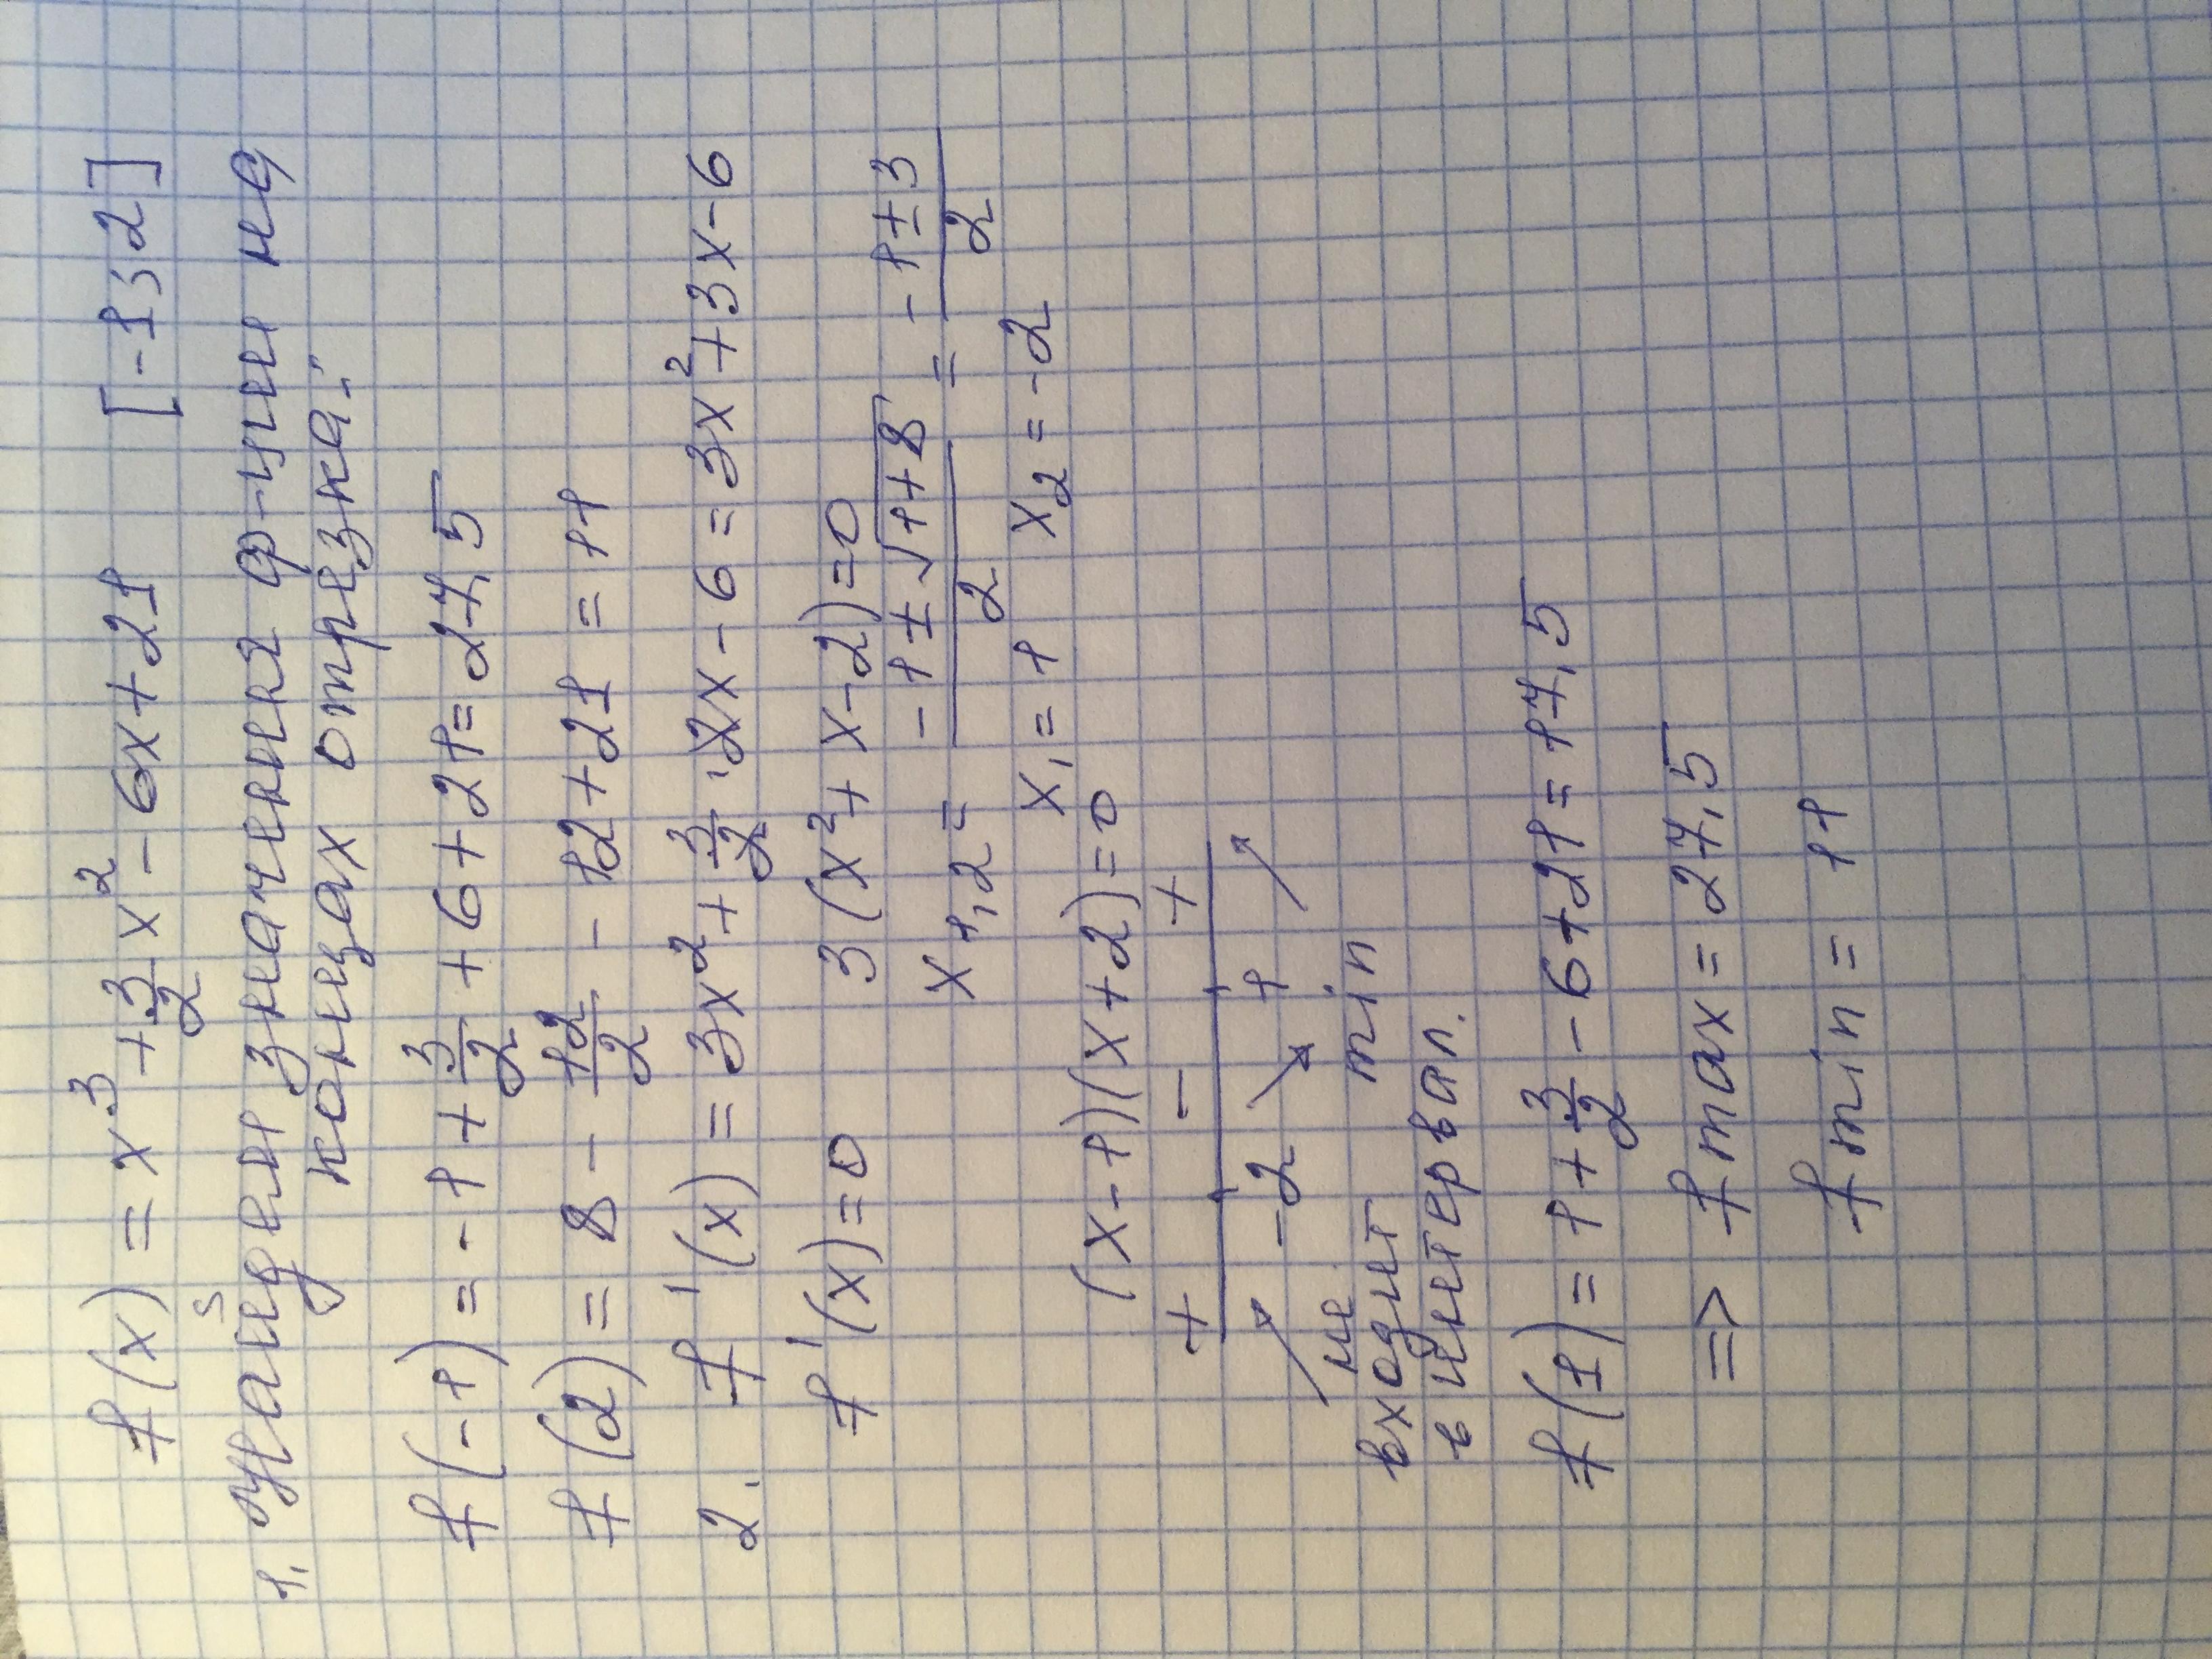 f(x) = x³ + 3/2 x² - 6x + 21 [-1; 2]
1. Найдем значения ф-ции на
концах отрезка:
f(-1) = -1 + 3/2 + 6 + 21 = 27,5
f(2) = 8 - 12/2 - 12 + 21 = 11
2. f'(x) = 3x² + 3/2 · 2x - 6 = 3x² + 3x - 6
f'(x) = 0 3(x² + x - 2) = 0
x1,2 = (-1 ± √(1+8))/2 = (-1 ± 3)/2
x₁ = 1 x₂ = -2
(x-1)(x+2) = 0
+ - +
-2 1
не min
входит
в интервал.
f(1) = 1 + 3/2 - 6 + 21 = 17,5
=> f max = 27,5
f min = 11